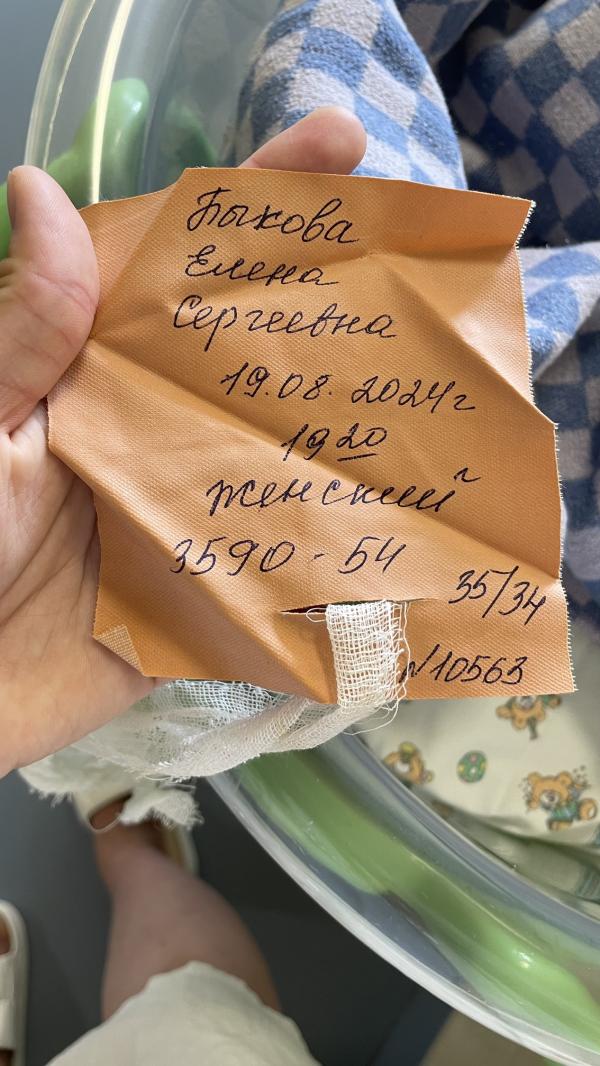 Быкова
Елена
Сергеевна
19.08.2024г
19 20
женский
3590 - 54
35/34
N10563